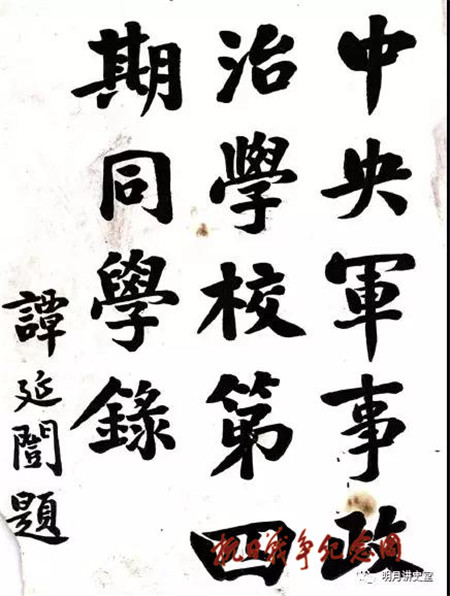 中央軍事政
治學校第四
期同學錄
譚延闓題
抗日戰争纪念网
明月讲史室